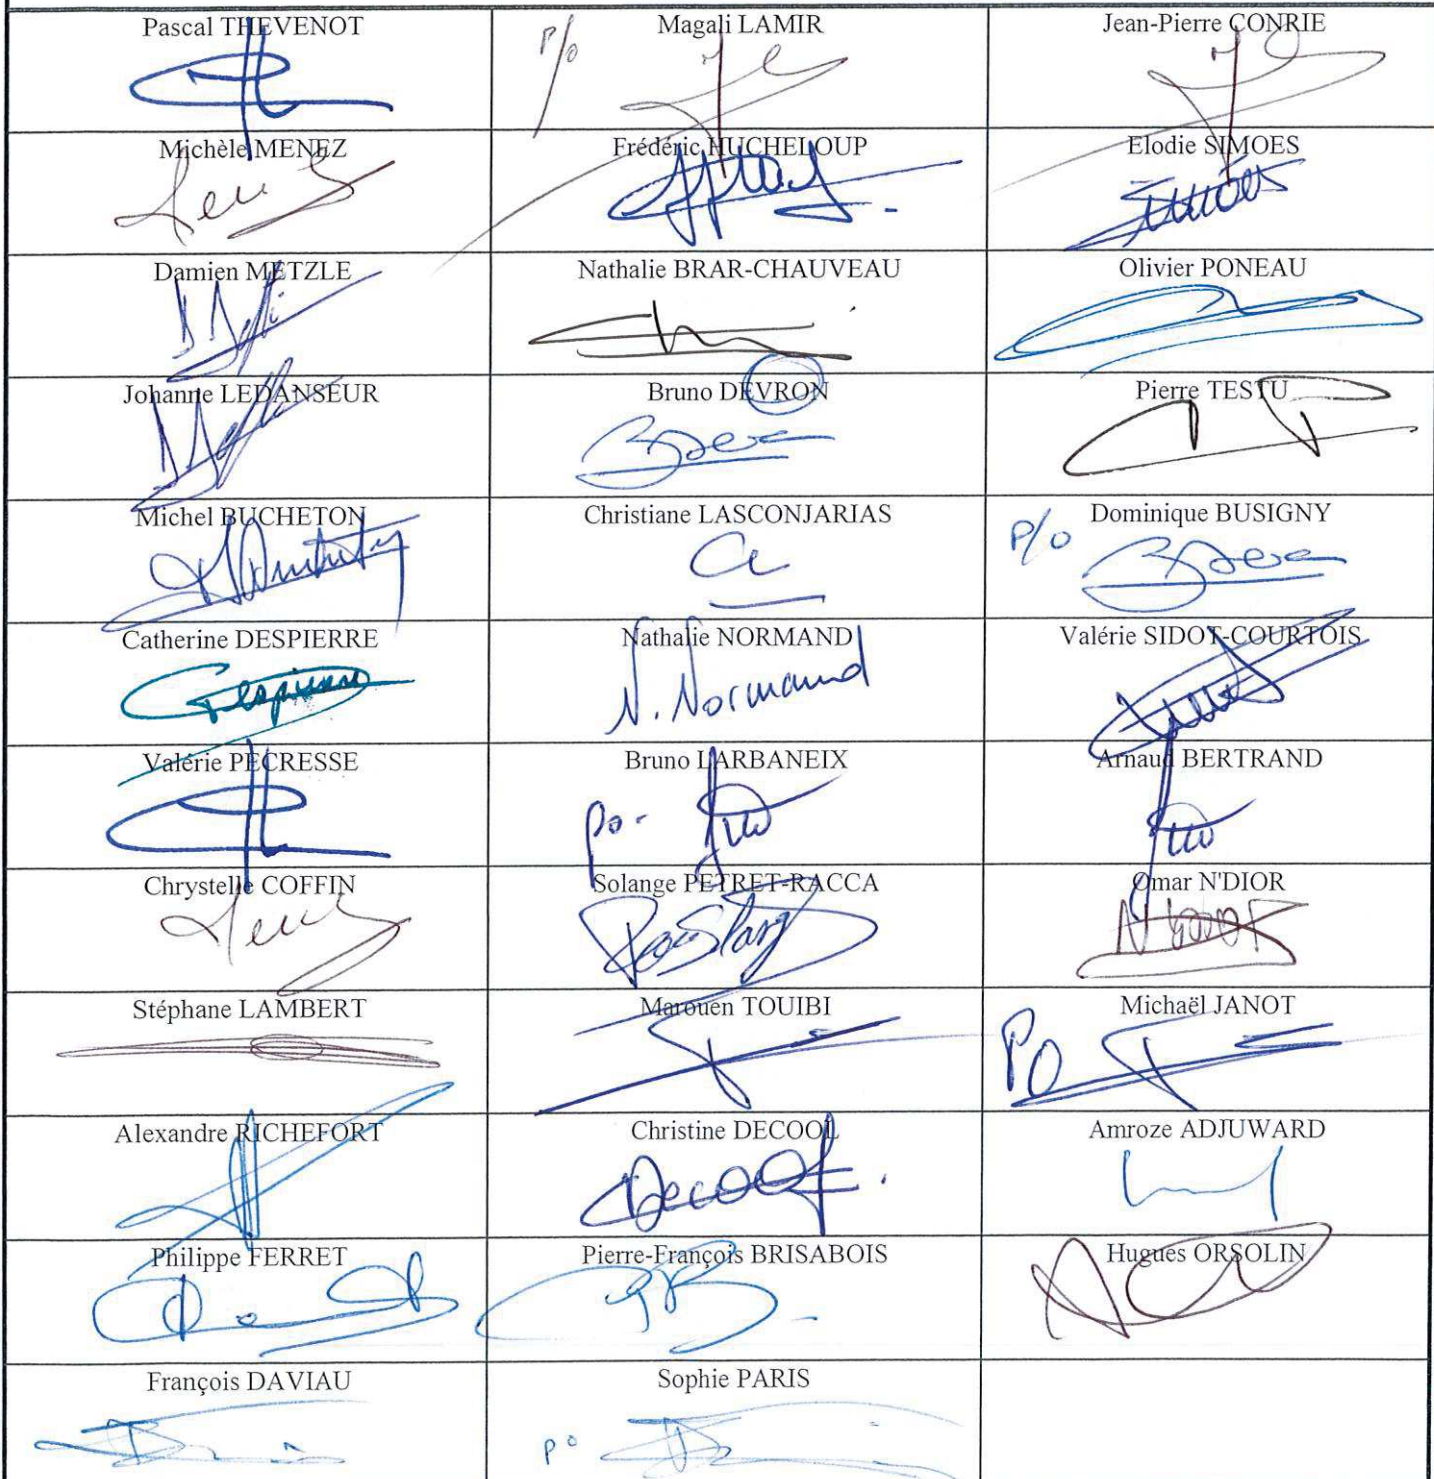 Pascal THEVENOT
P/o Magali LAMIR
Jean-Pierre CONRIE
Michèle MENEZ
Frédéric HUCHELOUP
Elodie SIMOES
Simoes
Damien METZLE
Nathalie BRAR-CHAUVEAU
Olivier PONEAU
Johanne LEDANSEUR
Bruno DEVRON
Pierre TESTU
Michel BUCHETON
Christiane LASCONJARIAS
P/o Dominique BUSIGNY
Catherine DESPIERRE
Despierre
Nathalie NORMAND
N. Normand
Valérie SIDOT-COURTOIS
Valérie PECRESSE
Bruno LARBANEIX
po-
Arnaud BERTRAND
Chrystelle COFFIN
Solange PETRET-RACCA
Omar N'DIOR
Stéphane LAMBERT
Marouen TOUIBI
Michaël JANOT
PO
Alexandre RICHEFORT
Christine DECOOL
Decool
Amroze ADJUWARD
Philippe FERRET
Pierre-François BRISABOIS
Hugues ORSOLIN
François DAVIAU
Sophie PARIS
po